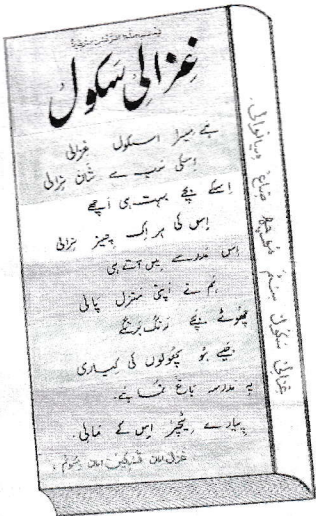 غزالی سکول
ہے میرا اسکول غزالی
اسکی سب سے شان نرالی
اسکے بچے بہت ہی اچھے
اس کی ہر اک چیز نرالی
اس مدرسے میں آتے ہی
ہم نے اپنی منزل پالی
چھوٹے بچے رنگ برنگے
جیسے ہو پھولوں کی کیاری
یہ مدرسہ باغ نما ہے۔
پیارے ٹیچر اس کے مالی۔
غزالی سکول سسٹم ضلع میانوالی